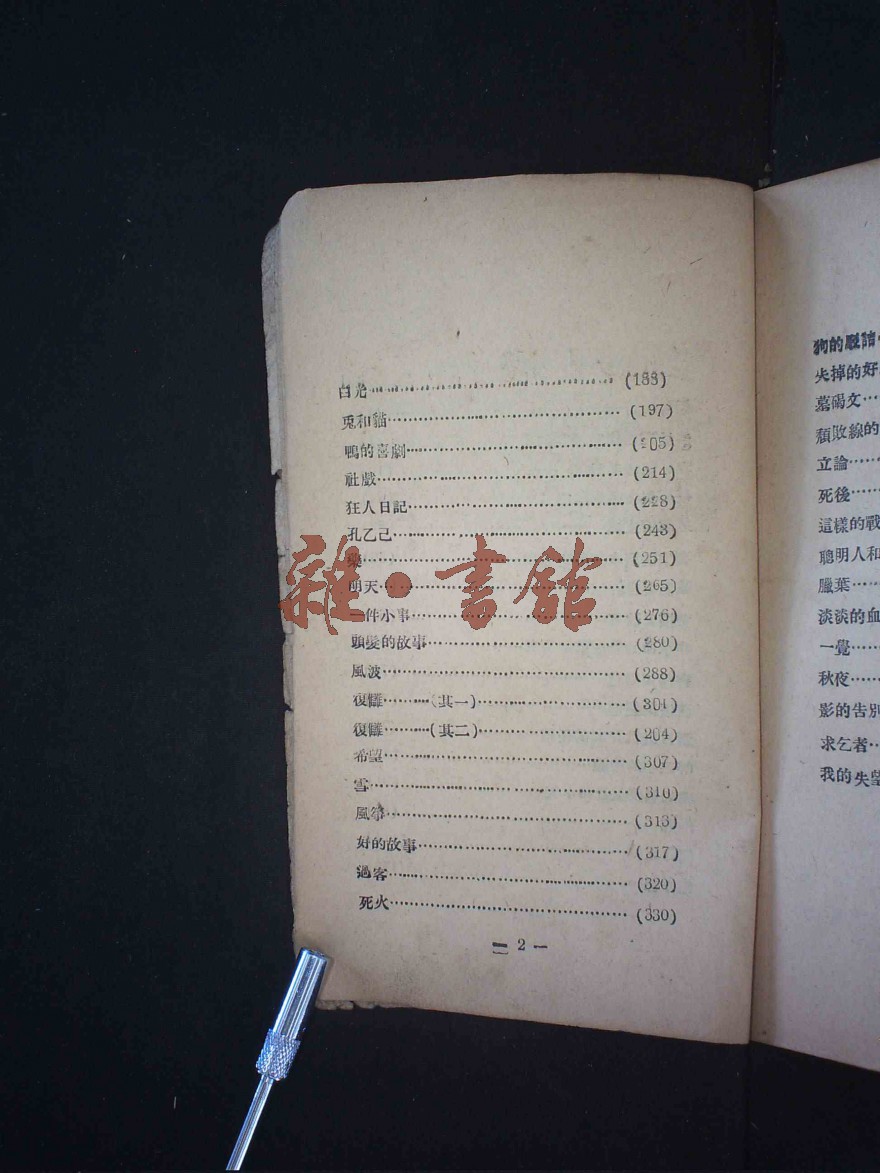 白光 (188)
兎和貓 (197)
鴨的喜劇 (205)
社戲 (214)
狂人日記 (228)
孔乙己 (243)
藥 (251)
明天 (265)
一件小事 (276)
頭髮的故事 (280)
風波 (288)
復讎 (其一) (301)
復讎 (其二) (204)
希望 (307)
雪 (310)
風箏 (313)
好的故事 (317)
過客 (320)
死火 (330)
二 2 一
雜·書館
狗的駁詰
失掉的好
墓碣文
頹敗線的
立論
死後
這樣的戰
聰明人和
臘葉
淡淡的血
一覺
秋夜
影的告別
求乞者
我的失戀